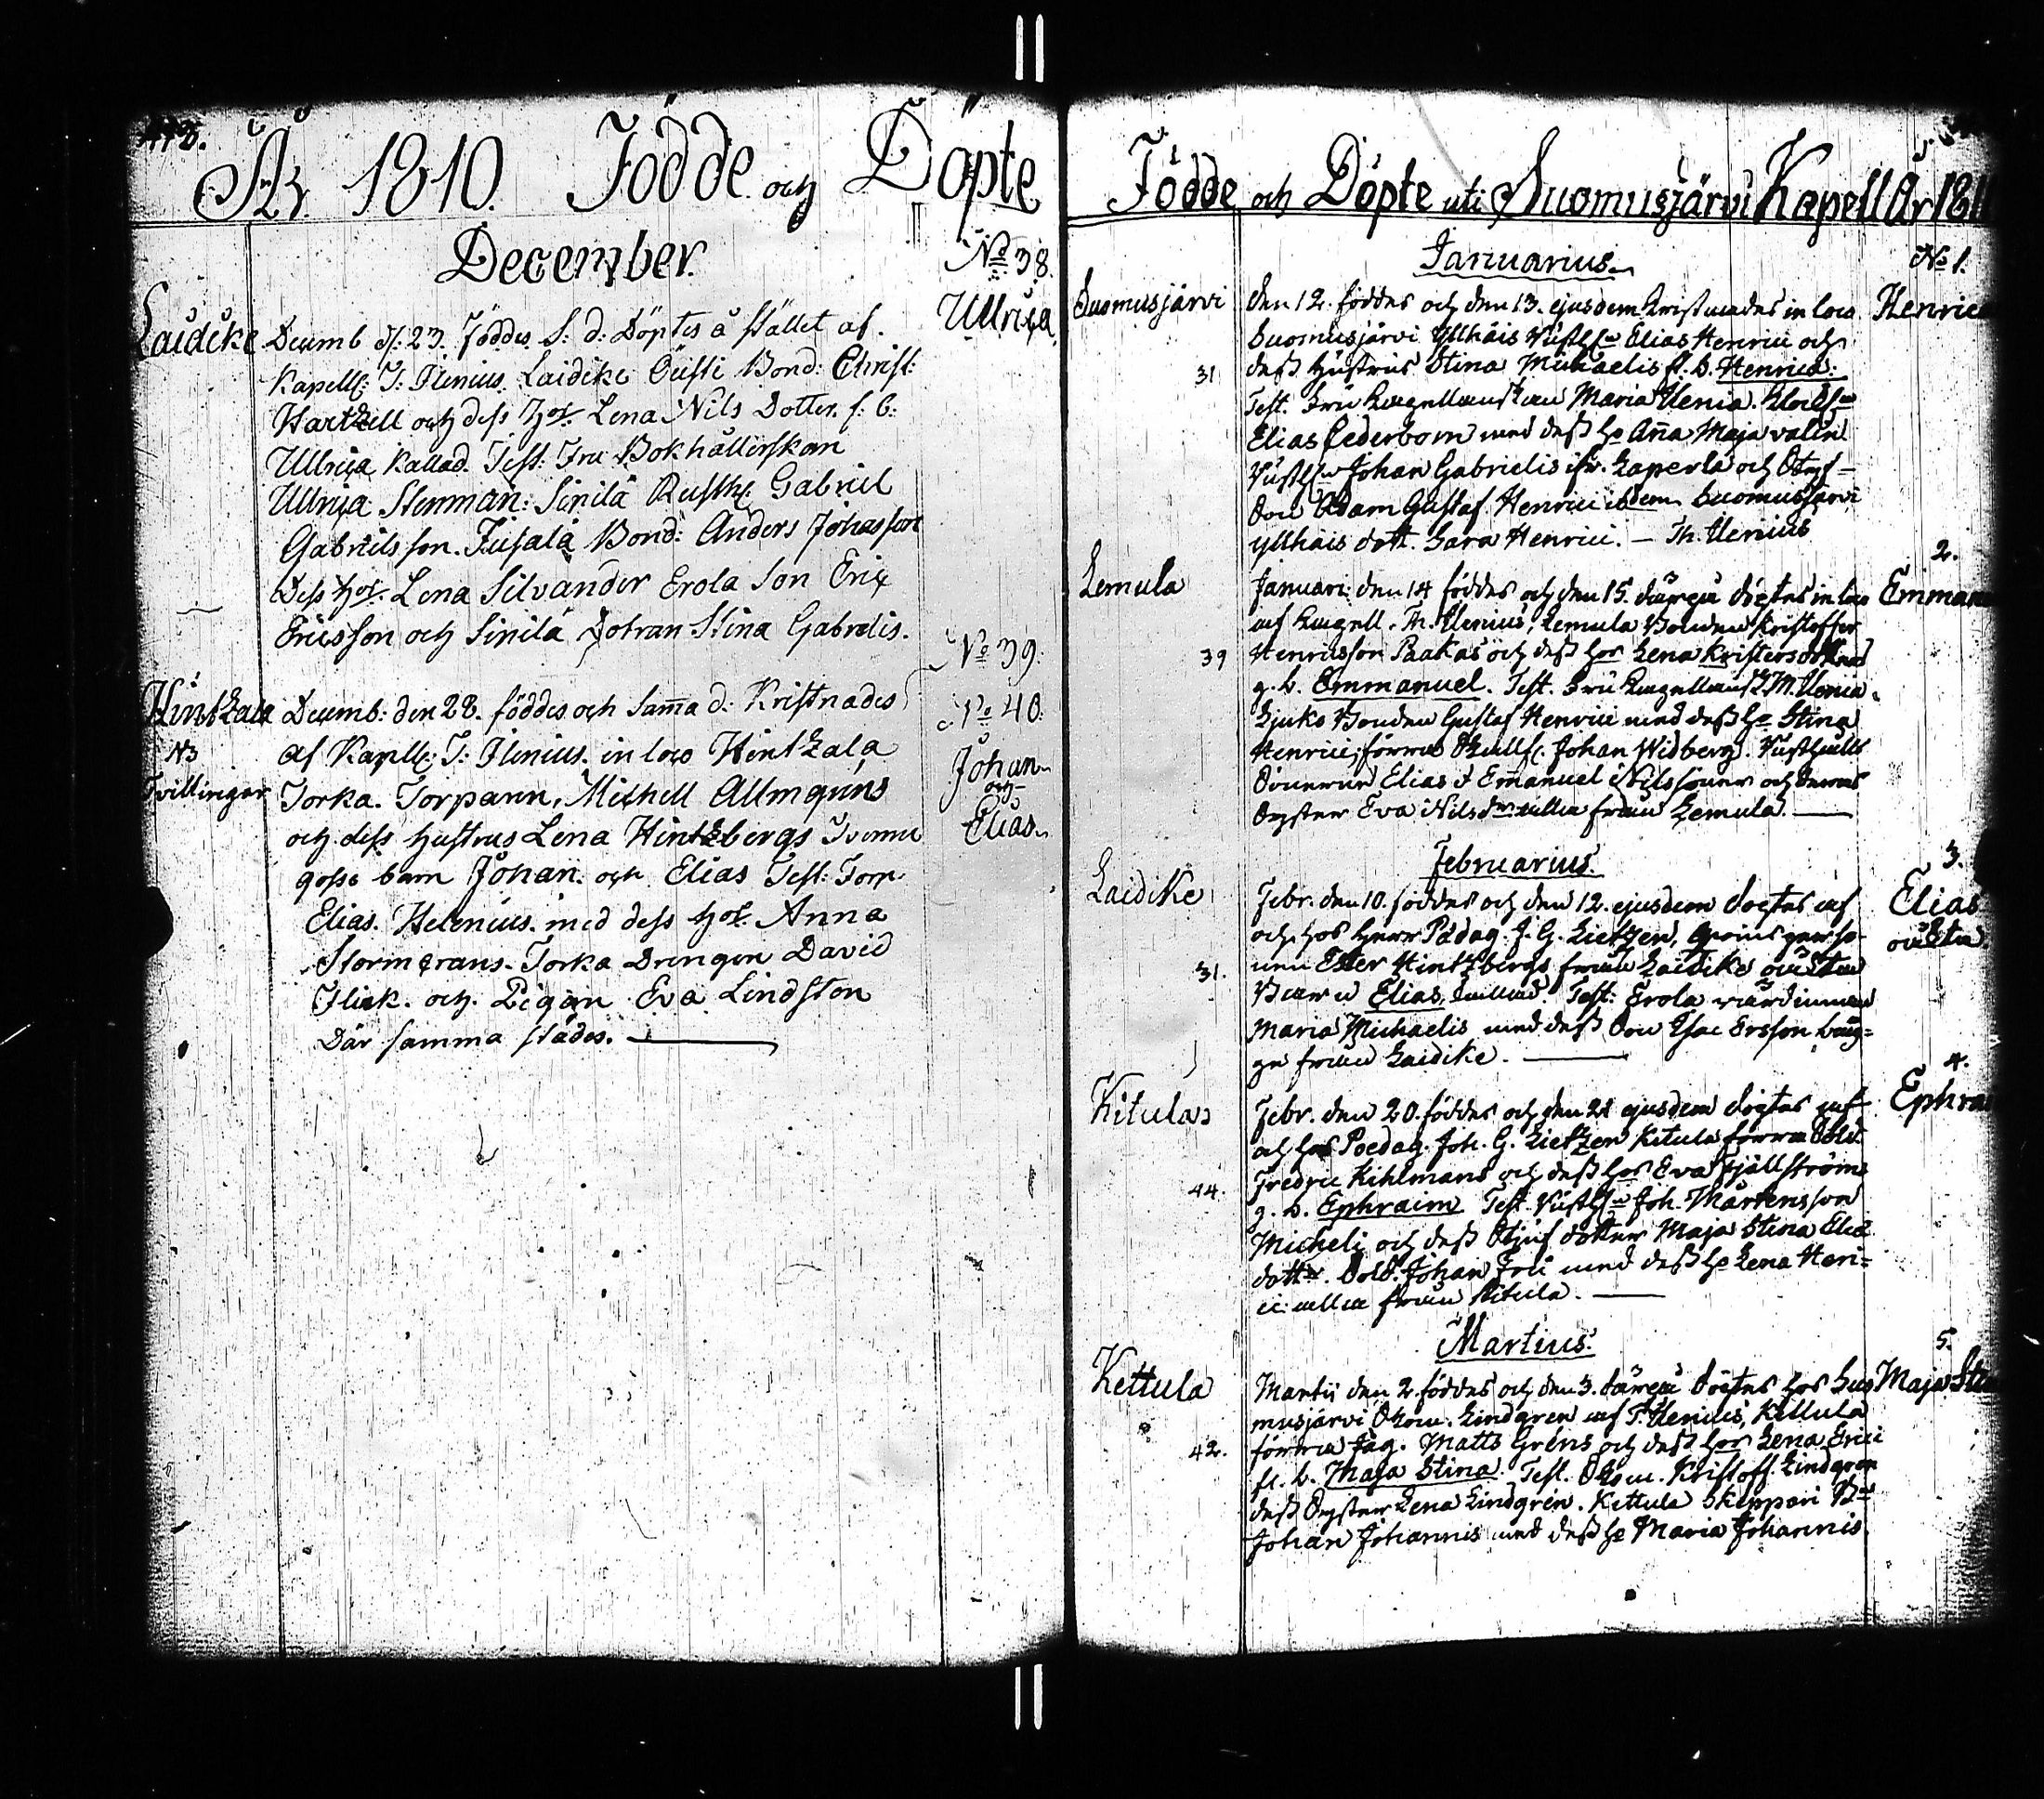 År 1810. Födde och Döpte
December.
No 38.
Ullrica
Laidike
Decemb d. 23. Föddes S: d: Döptes å stället af.
Kapell: T: Ilenius. Laidike Öusti Bond: Christ:
Hartzell och dess Hos. Lena Nils Dotter. f: b:
Ullrica Kallad. Test: Fru Bokhållerskan
Ullrica Stenman: Sinilä Rusth: Gabriel
Gabriels son. Bond: Anders Johansson
Dess Hos. Lena Silvander Erola Son Eric
Ericsson och Sinilä Dotran Stina Gabrelis.
Hintzala
NB
Tvillingar
No 39.
No 40.
Johan
och
Elias
Decemb: den 28. föddes och Samma d: Kristnades
af Kapell: T: Ilenius. in loco Hintzala
Torka. Torparen, Michell Allmquins
och dess hustrus Lena Hintzbergs Tvenne
gosse barn Johan. och Elias Test: Torp.
Elias. Helenius. med dess Hos. Anna
Stormcrans. Torka Drengen David
Flink. och. Pigan Eva Lindston
Där samma städes.
Födde och Döpte uti Suomusjärvi Kapell År 181
Januarius.
No 1.
Suomusjärvi
31
den 12. föddes och den 13. ejusdem Kristnades in loco
Suomusjärvi Yllhäis Rusth Elias Henrici och
dess Hustrus Stina Michaelis f. b. Henric:
Test. Fru Kapellanskan Maria Ilenia. Klock
Elias Cederborn med dess H Anna Maja valin
Rusth Johan Gabrielis ifr. Laperla och
Son Adam Gustaf Henrici ibdem Suomusjärvi
Yllhäis dott. Sara Henrici. — Th. Ilenius
Lemula
39
2.
Januari. den 14 föddes och den 15. därpå döptes in loco
af Kapell. Th. Ilenius, Lemula Bonden Kristoffer
Henricsson Paakas och dess Hos Lena Kristersdotters
g. b. Emmanuel. Test. Fru Kapellansk M. Ilenia.
Bonden Gustaf Henrici med dess H Stina
Henrici, förra Johan Widberg. Rusthålls
Sönerna Elias & Emanuel Nilssöner och deras
Syster Eva Nilsdr alla från Lemula.
Februarius.
Laidike
31.
3.
Elias
oäckta
Febr. den 10. föddes och den 12. ejusdem döptes af
och hos Herr Pädag. J. G. Lietzen,
Ester Hintzbergs från Laidike oäckta
Barn Elias, kallad. Test: Erola värdinnan
Maria Michaelis med dess Son Isac Ersson
från Laidike.
Kitulas
44.
4.
Febr. den 20. föddes och den 21 ejusdem döptes af
och hos Poedag. Joh. G. Lietzen Kitula förra Sold.
Fredric Kihlmans och dess Hos Eva Fjällströms
g. b. Ephraim Test. Rusth Joh. Mårtensson
Micheli och dess Styfdotter Maja Stina Elia
dotter. Sold. Johan Frii med dess H Lena Henri=
ci alla från Kitula.
Martius.
Kettula
42.
5.
Martii den 2 föddes och den 3. därpå döptes hos Suo
musjärvi Lindgren af T. Ilenius, Kettula
förra Jäg. Matts Gréns och dess Hos Lena Erici
fl. b. Maja Stina. Test. Kristoff. Lindgren
dess Syster Lena Lindgrén. Kettula Skeppari
Johan Johannis med dess H Maria Johannis.